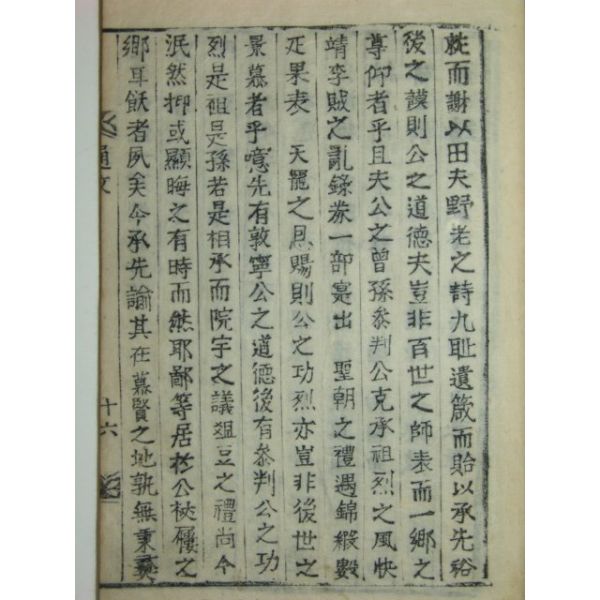 而謝以田夫野老之詩九耻遺箴而貽以承先裕
後之謨則公之道德夫豈非百世之師表而一鄉之
尊仰者乎且夫公之曾孫叅判公克承祖烈之風快
靖李賊之亂錄券一部寔出 聖朝之禮遇錦緞數
疋果表 天寵之恩賜則公之功烈亦豈非後世之
景慕者乎噫先有敦寧公之道德後有叅判公之功
烈是祖是孫若是相承而院宇之議俎豆之禮尚今
泯然抑或顯晦之有時而然耶鄙等居於公杖屨之
鄉耳飫者夙矣今承先諭其在慕賢之地孰無秉彛
通文
十六